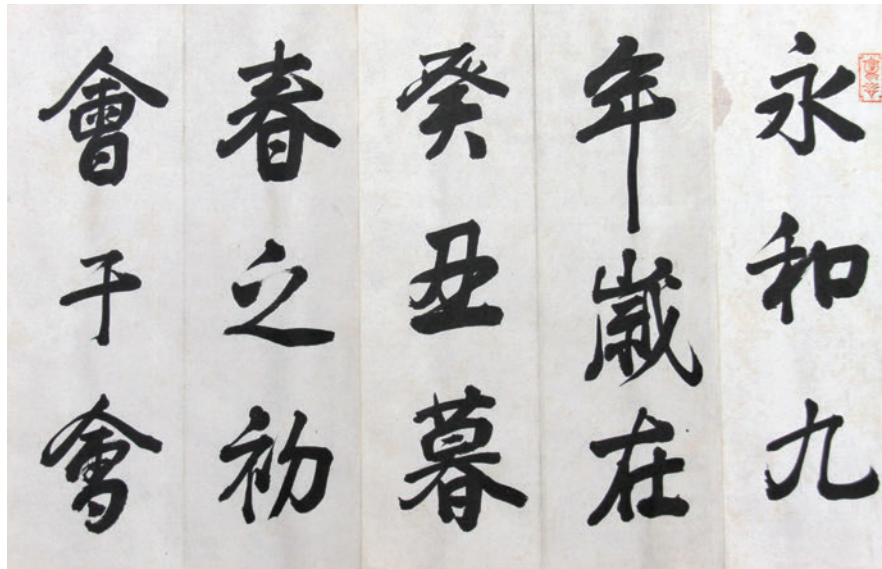 永和九
年歲在
癸丑暮
春之初
會于會